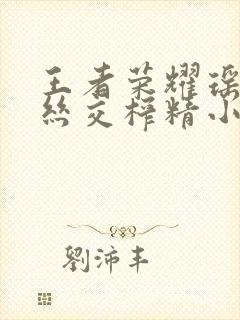 王者荣耀瑶
丝交榨精小
劉沛丰